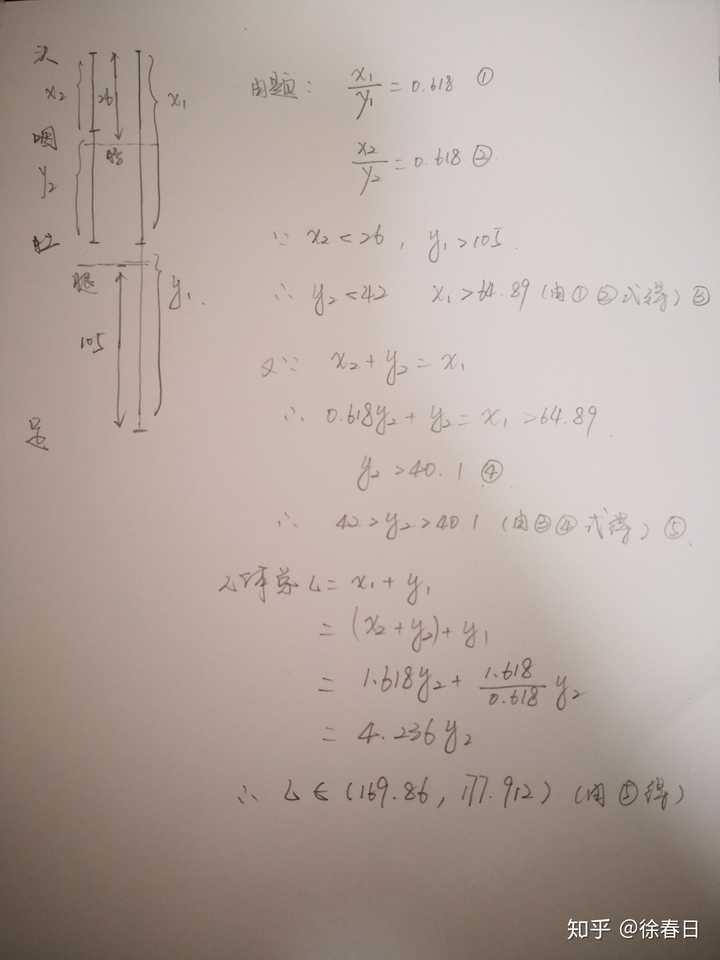 头
x₂ 26 x₁
咽
脖
y₂
肚
腿 y₁
105
足
由题: x₁/y₁ = 0.618 ①
x₂/y₂ = 0.618 ②
∵ x₂ < 26, y₁ > 105
∴ y₂ < 42 x₁ > 64.89 (由①②式得) ③
又∵ x₂ + y₂ = x₁
∴ 0.618y₂ + y₂ = x₁ > 64.89
y₂ > 40.1 ④
∴ 42 > y₂ > 40.1 (由③④式得) ⑤
人体总 L = x₁ + y₁
= (x₂ + y₂) + y₁
= 1.618y₂ + 1.618/0.618 y₂
= 4.236y₂
∴ L ∈ (169.86, 177.912) (由⑤得)
知乎 @徐春日